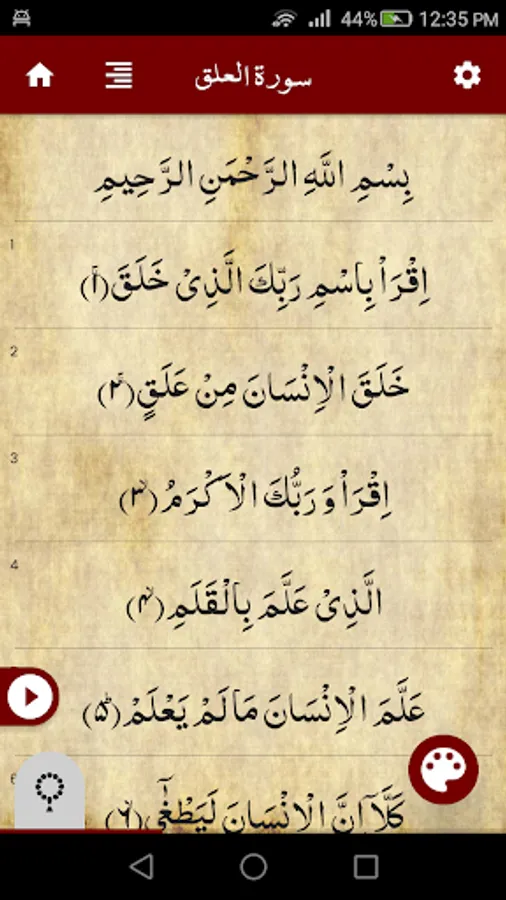 44% 12:35 PM
سورة العلق
بِسْمِ اللَّهِ الرَّحْمَنِ الرَّحِيمِ
1
اِقْرَاْ بِاسْمِ رَبِّكَ الَّذِىْ خَلَقَ (۱)
2
خَلَقَ الْاِنْسَانَ مِنْ عَلَقٍ (۲)
3
اِقْرَاْ وَ رَبُّكَ الْاَكْرَمُ (۳)
4
الَّذِىْ عَلَّمَ بِالْقَلَمِ (۴)
عَلَّمَ الْاِنْسَانَ مَا لَمْ يَعْلَمْ (۵)
6
كَلَّاۤ اِنَّ الْاِنْسَانَ لَيَطْغٰۤى (۶)